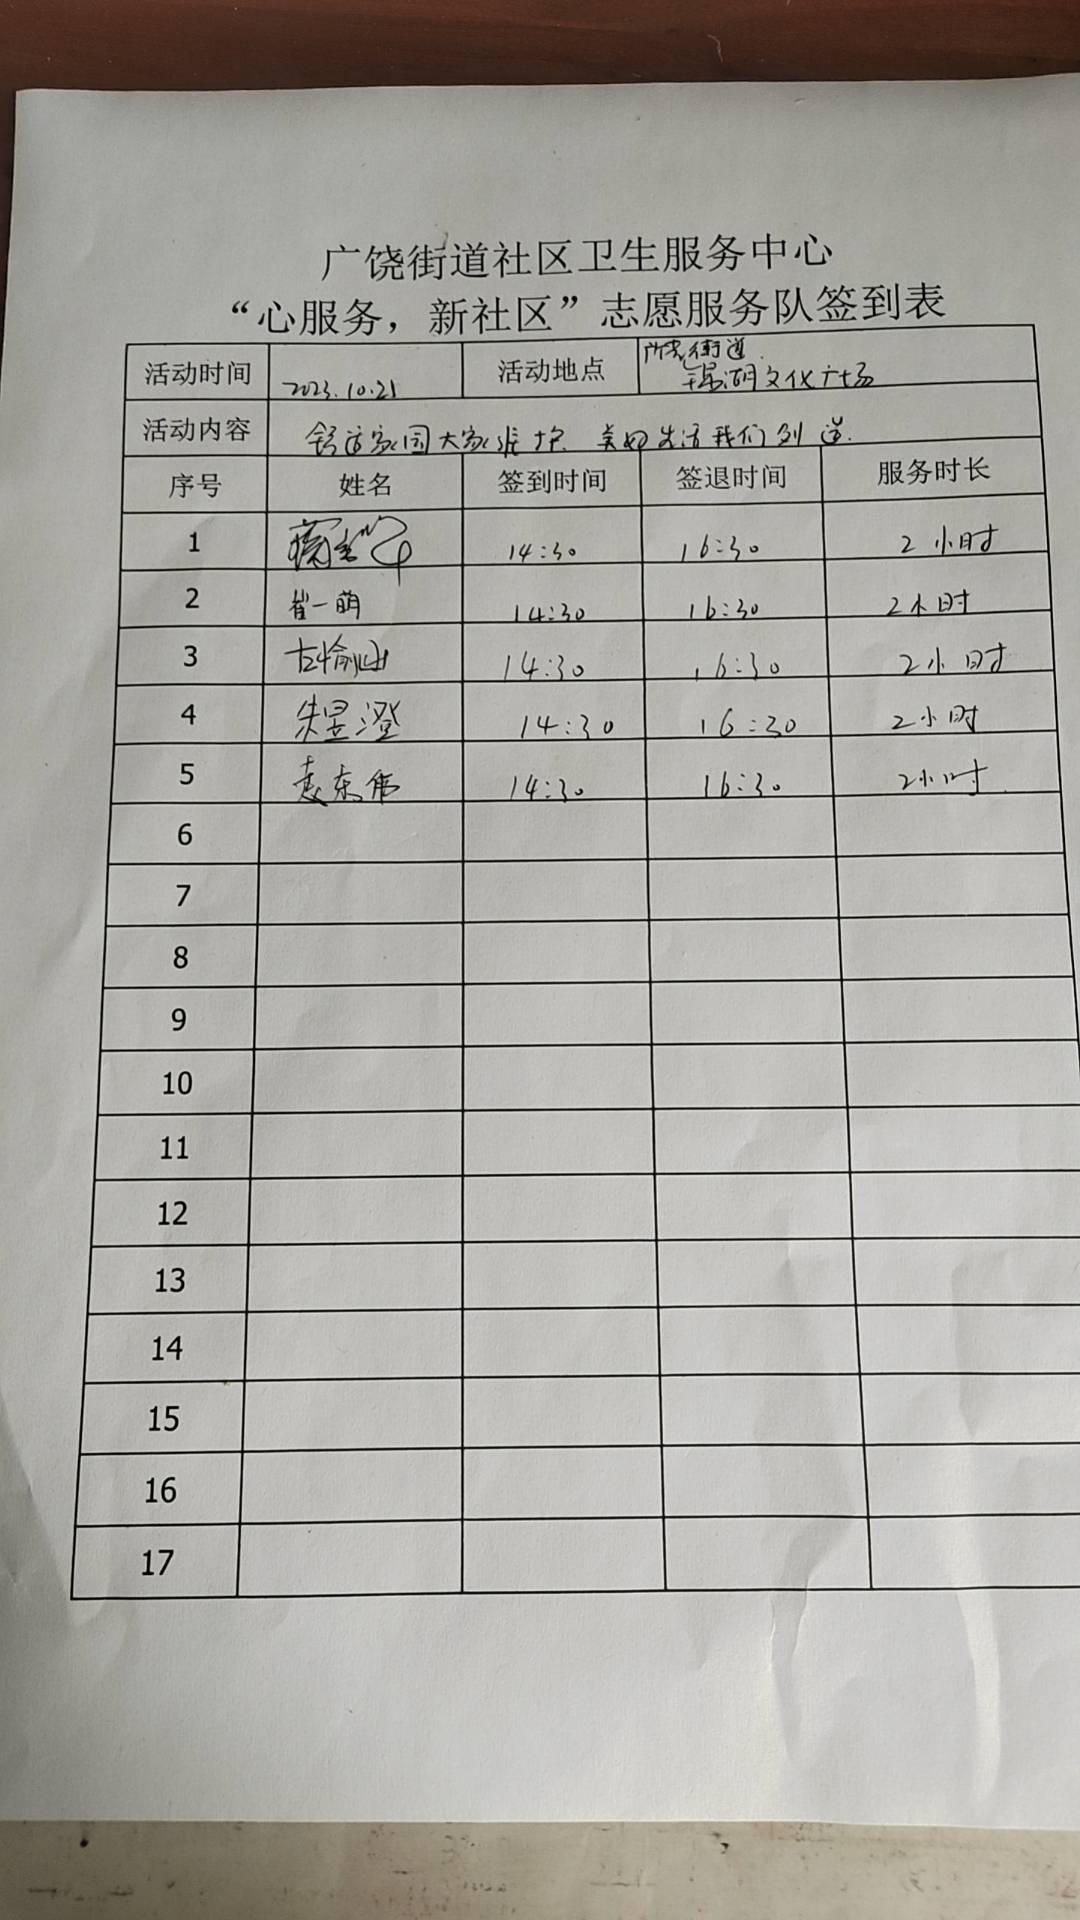 广饶街道社区卫生服务中心
“心服务，新社区”志愿服务队签到表
活动时间 2023.10.21 活动地点 广饶街道
锦湖文化广场
活动内容 舒适家园大家维护 美好生活我们创造.
序号 姓名 签到时间 签退时间 服务时长
1 14:30 16:30 2小时
2 崔一萌 14:30 16:30 2小时
3 14:30 16:30 2小时
4 朱昱澄 14:30 16:30 2小时
5 袁东伟 14:30 16:30 2小时
6
7
8
9
10
11
12
13
14
15
16
17